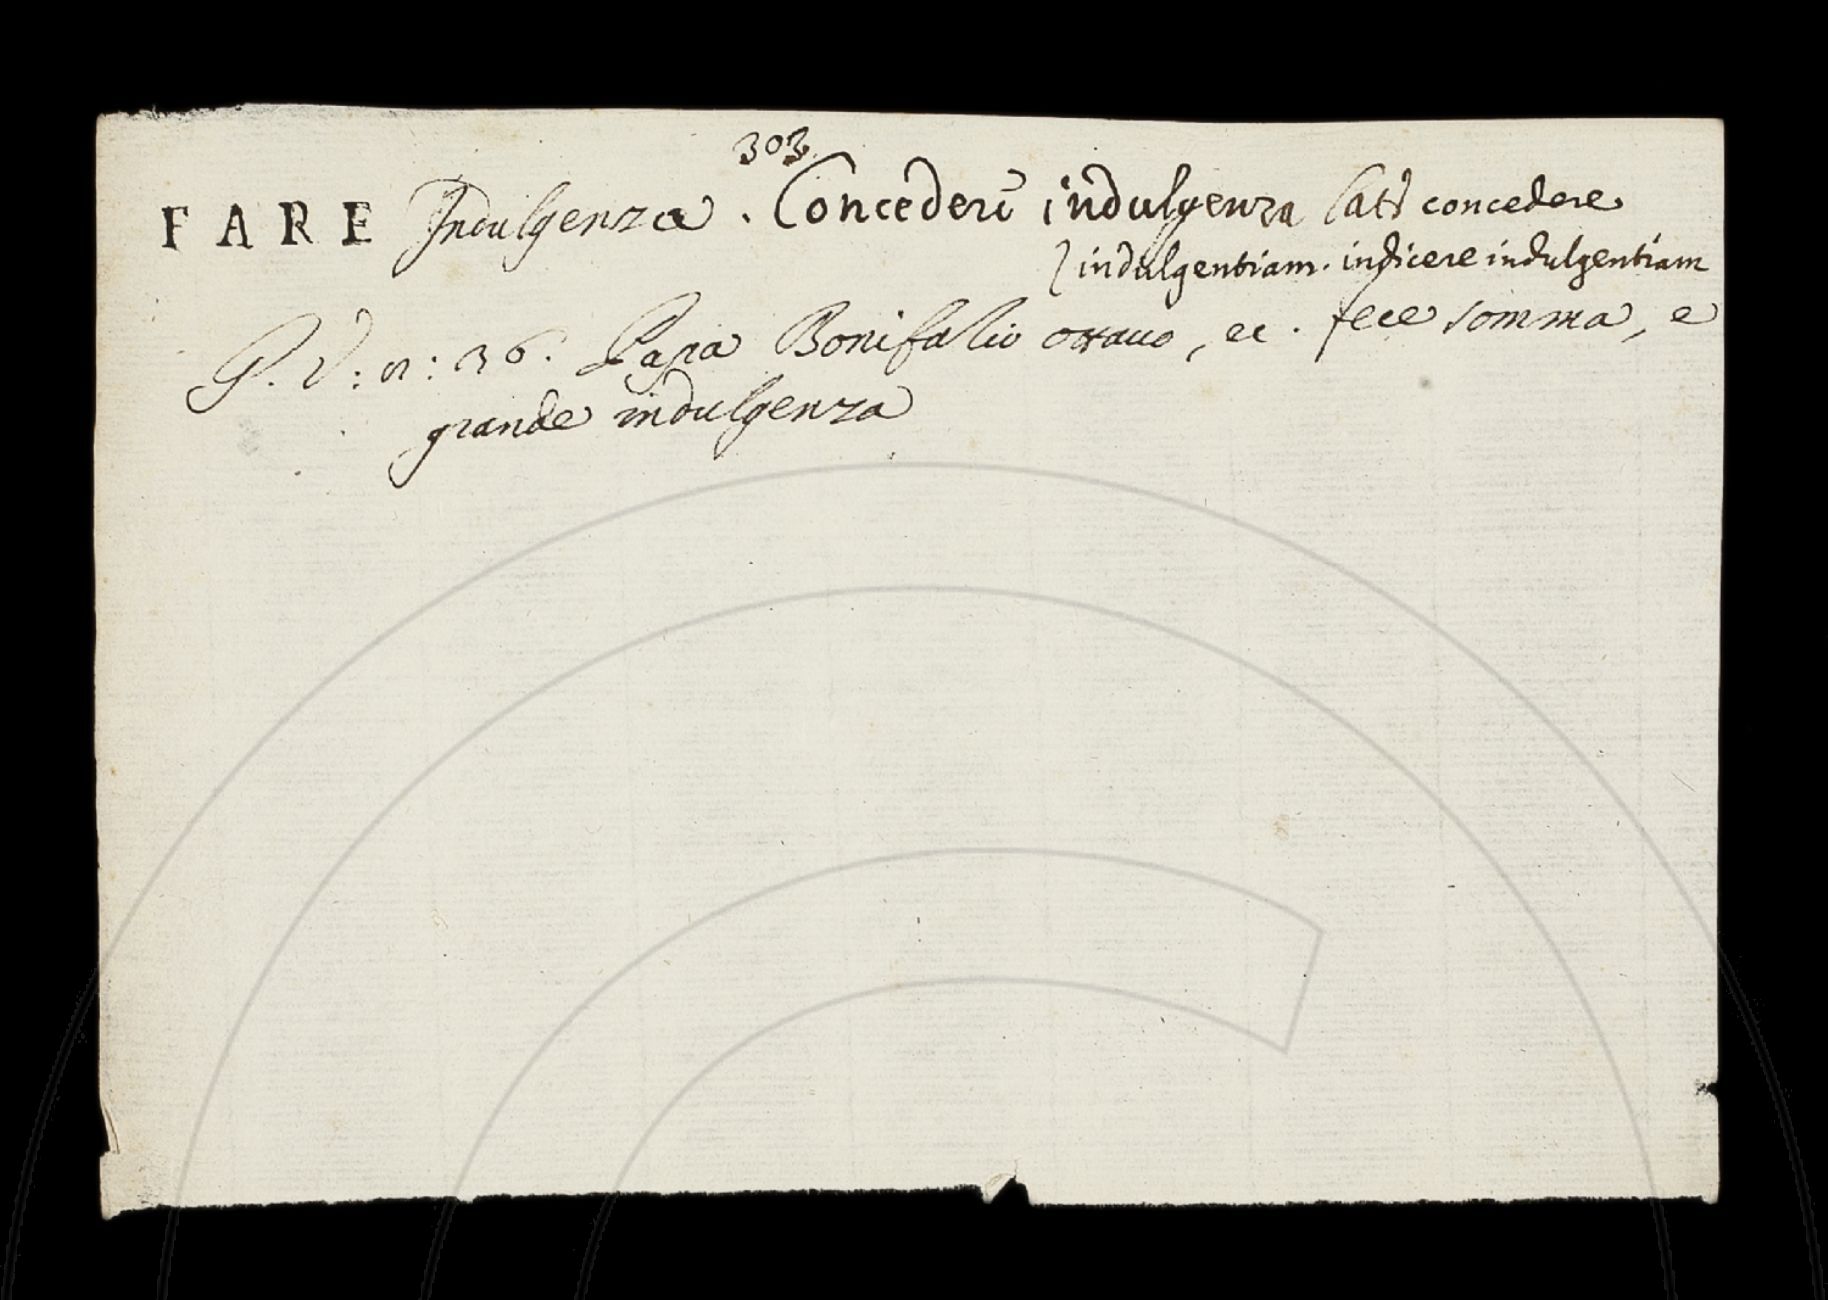 303.
FARE Indulgenza. Concedere indulgenza Lat. concedere
indulgentiam. indicere indulgentiam
G. V: n: 36. Papa Bonifazio ottauo, ec. fece somma, e
grande indulgenza